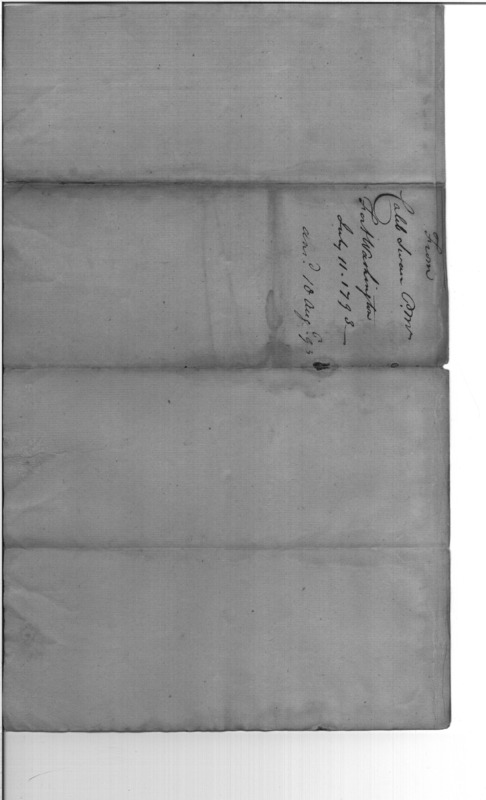 From
Caleb Swan P.Mr
Fort Washington
July 11. 1793 —
ansd. 10 Aug. 93